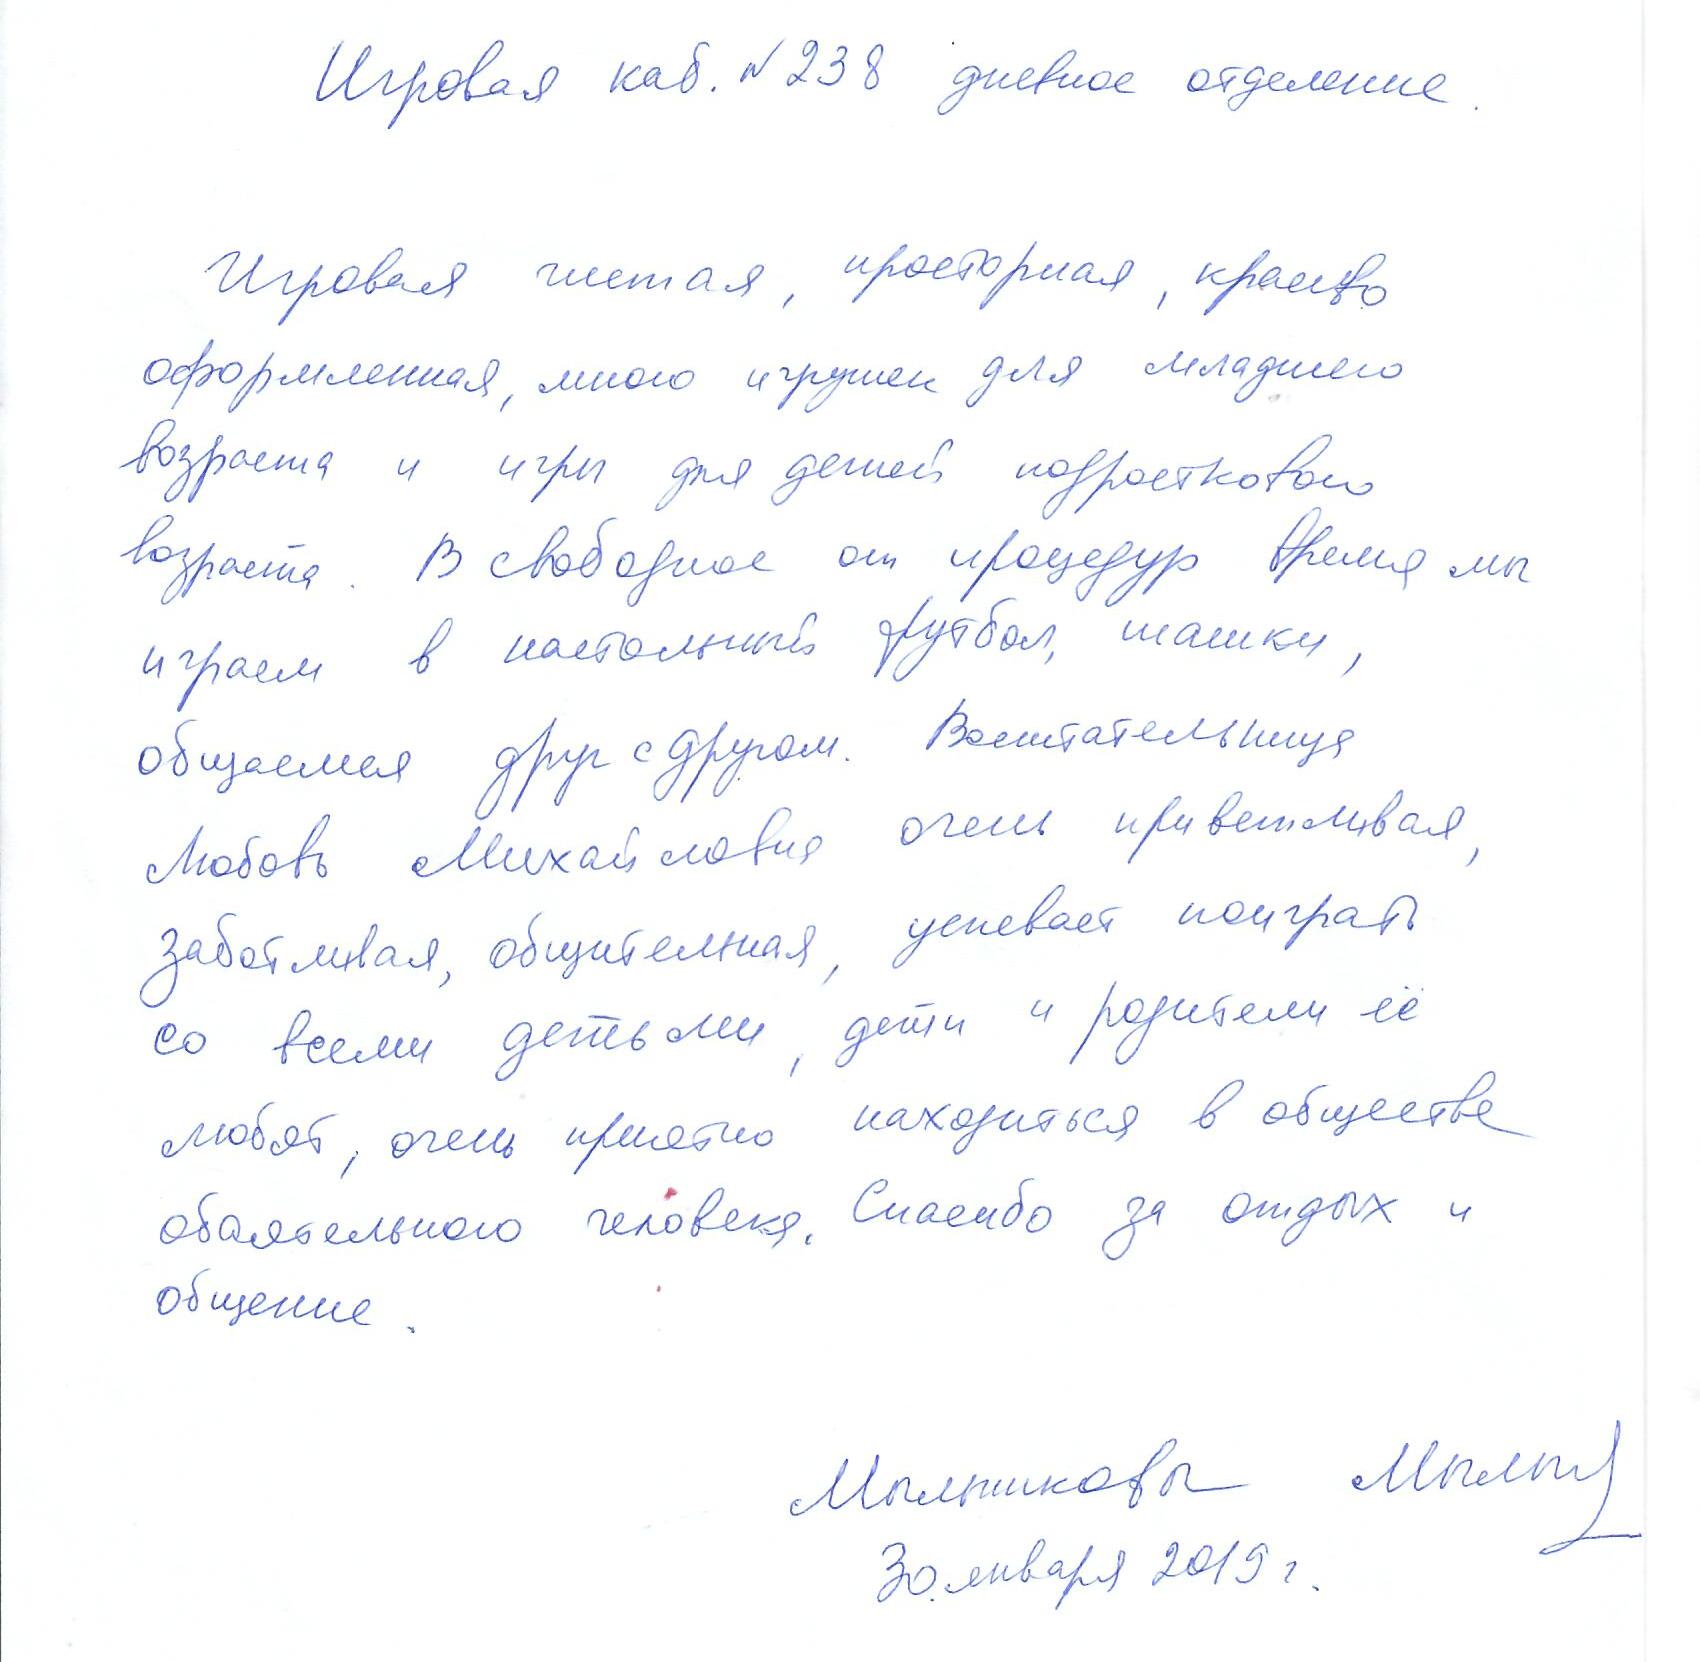 Игровая каб. № 238 дневное отделение.
Игровая чистая, просторная, красиво
оформленная, много игрушек для младшего
возраста и игры для детей подросткового
возраста. В свободное от процедур время мы
играем в настольный футбол, шашки,
общаемся друг с другом. Воспитательница
Любовь Михайловна очень приветливая,
заботливая, общительная, успевает поиграть
со всеми детьми, дети и родители её
любят, очень приятно находиться в обществе
обаятельного человека. Спасибо за отдых и
общение.
Мыльниковы
30 января 2019 г.